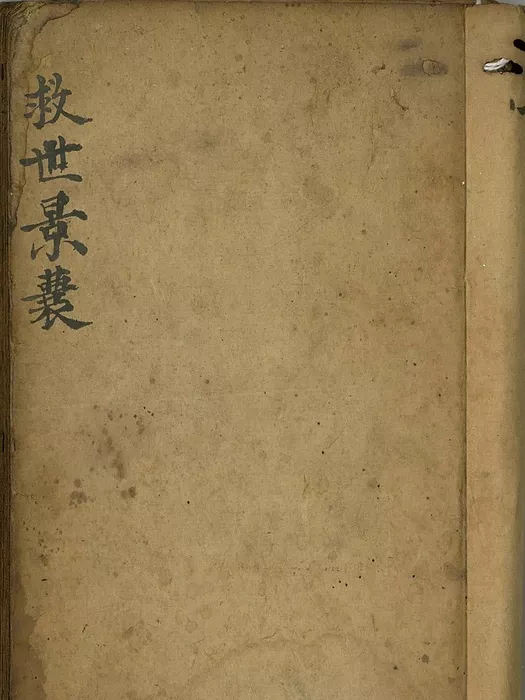 救世景囊